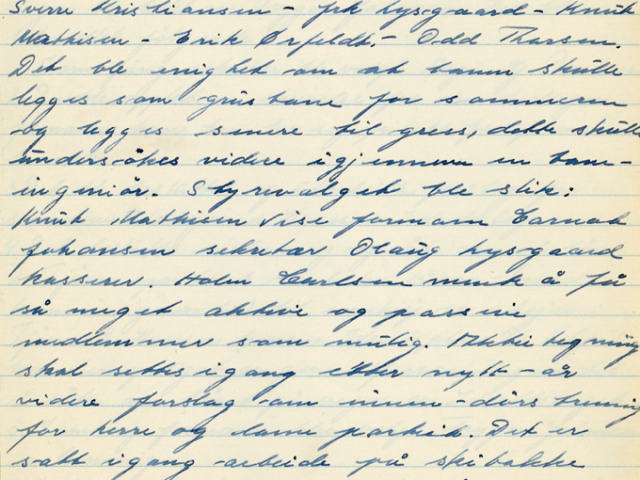 Sverre Kristiansen - frk Lysgaard - Knut
Mathisen - Erik Ørfeldt - Odd Thorsen.
Det ble enighet om at banen skulle
legges som grusbane for sommeren
og legges senere til gress, dette skulle
undersøkes videre igjennem en bane-
ingeniør. Styrevalget ble slik:
Knut Mathisen vise formann
Johansen sekretær Olaug Lysgaard
kasserer. Holm Carlsen mente å få
så meget aktive og passive
medlemmer som mulig. Aktietegning
skal settes igang etter nytt-år
videre forslag om innen-dørs trening
for herre og dame partiet. Det er
satt igang arbeide på skibakke